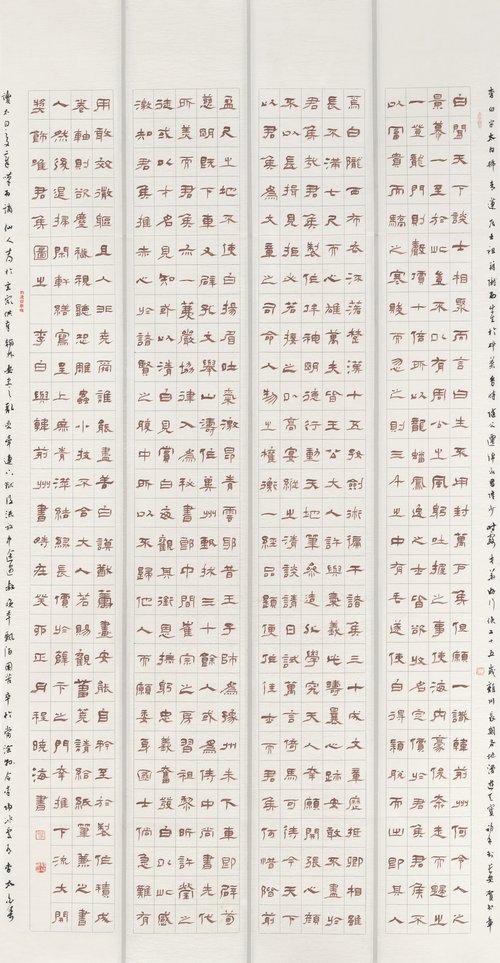 白聞天下談士相聚而言曰生不用封萬戶侯但願一識韓荊州何令人之
景慕一至於此豈不以有周公之風躬吐握之事使海內豪俊奔走而歸之
一登龍門則聲價十倍所以龍蟠鳳逸之士皆欲收名定價於君侯君侯不
以富貴而驕之寒賤而忽之則三千之中有毛遂使白得穎脫而出即其人
焉白隴西布衣流落楚漢十五好劍術徧干諸侯三十成文章歷抵卿相雖
長不滿七尺而心雄萬夫皆王公大人許與氣義此疇曩心跡安敢不盡於
君侯哉君侯製作侔神明德行動天地筆參造化學究天人幸願開張心顏
不以長揖見拒必若接之以高宴縱之以清談請日試萬言倚馬可待今天下
以君侯為文章之司命人物之權衡一經品題便作佳士而今君侯何惜階前
盈尺之地不使白揚眉吐氣激昂青雲耶昔王子師為豫州未下車即辟荀
慈明既下車又辟孔文舉山濤作冀州甄拔三十餘人或為侍中尚書先代
所美而君侯亦薦一嚴協律入為秘書郎中間崔宗之房習祖黎昕許瑩之
徒或以才名見知或以清白見賞白每觀其銜恩撫躬忠義奮發以此感
激知君侯推赤心於諸賢之腹中所以不歸他人而願委身國士倘急難有
用敢效微軀且人非堯舜誰能盡善白謨猷籌畫安能自矜至於製作積成
卷軸則欲塵穢視聽恐雕蟲小技不合大人若賜觀芻蕘請給紙筆兼之書
人然後退掃閑軒繕寫呈上庶青萍結綠長價於薛卞之門幸推下流大開
獎飾唯君侯圖之 李白與韓荊州書 時在癸卯正月程曉海書